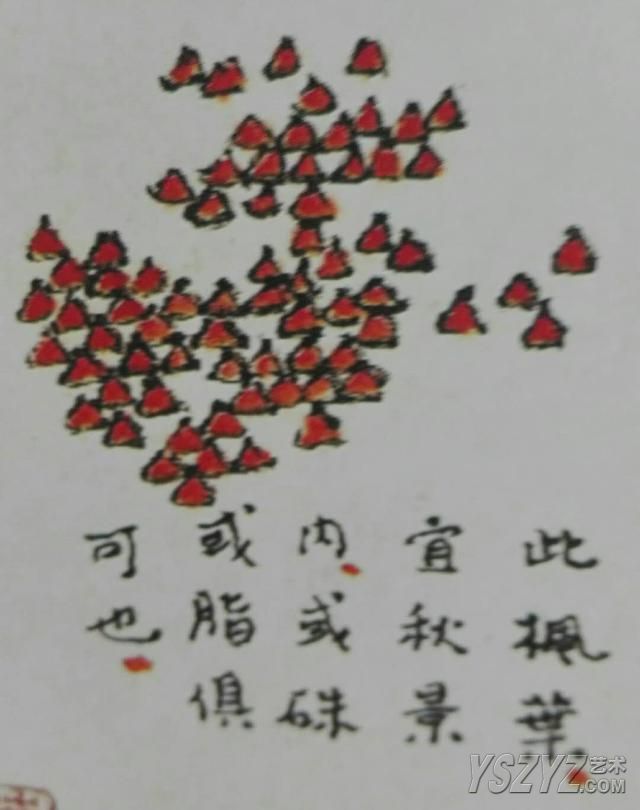 此楓葉
宜秋景
内或硃
或脂俱
可也
YSZYZ艺术
.COM